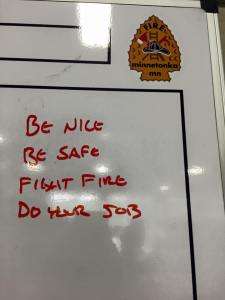 FIRE
minnetonka
mn
BE NICE
BE SAFE
FIGHT FIRE
DO YOUR JOB